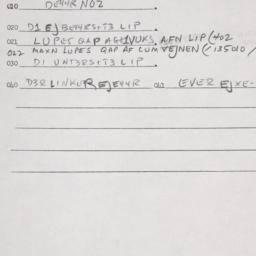 010 DE44R NO2
020 D1 EJ BE44RS1T3 LIP
021 LUPES QAP AGUVUKS AFN LIP (402
022 MAXN LUPES QAP AF LUM VEJNEN (/135010/
030 D1 UNT3RS1T3 LIP
040 D3R LINKUR EJE44R 041 EVER EJ XE-